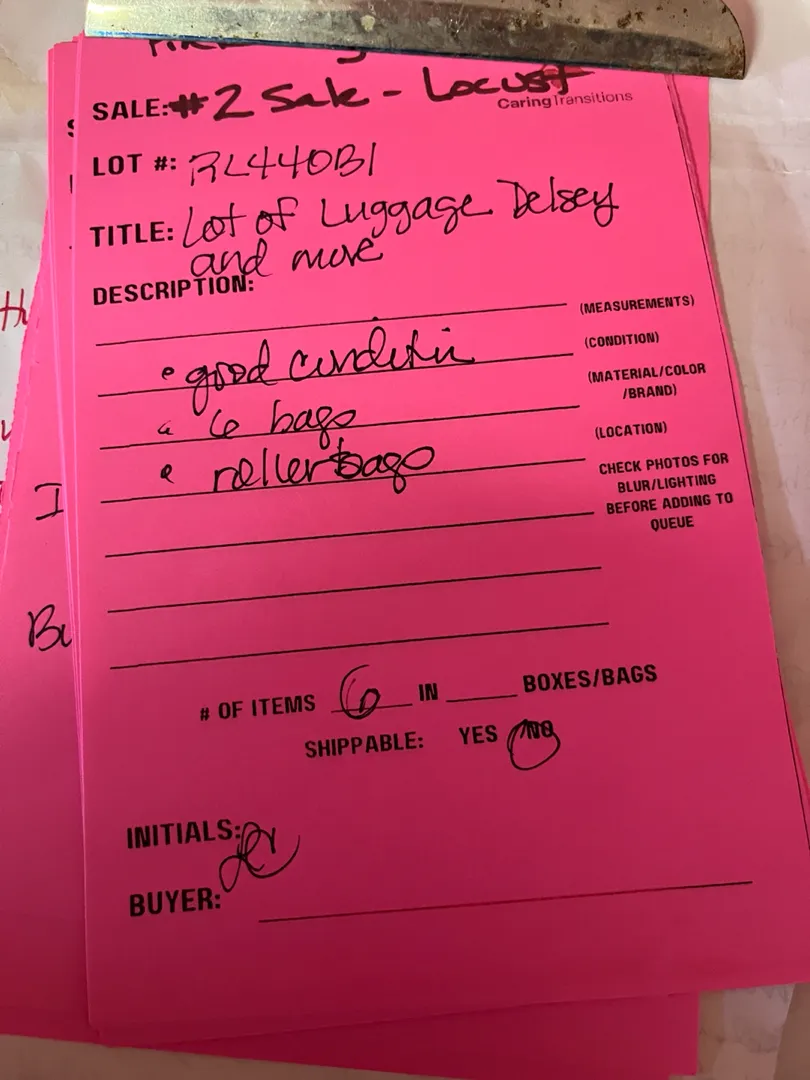 SALE: #2 Sale - Locust
CaringTransitions
LOT #: RL440B1
TITLE: Lot of Luggage Delsey
and more
DESCRIPTION:
(MEASUREMENTS)
• good condition
(CONDITION)
• 6 bags
(MATERIAL/COLOR
/BRAND)
• roller bags
(LOCATION)
CHECK PHOTOS FOR
BLUR/LIGHTING
BEFORE ADDING TO
QUEUE
# OF ITEMS 6 IN ______ BOXES/BAGS
SHIPPABLE: YES NO
INITIALS:
BUYER: